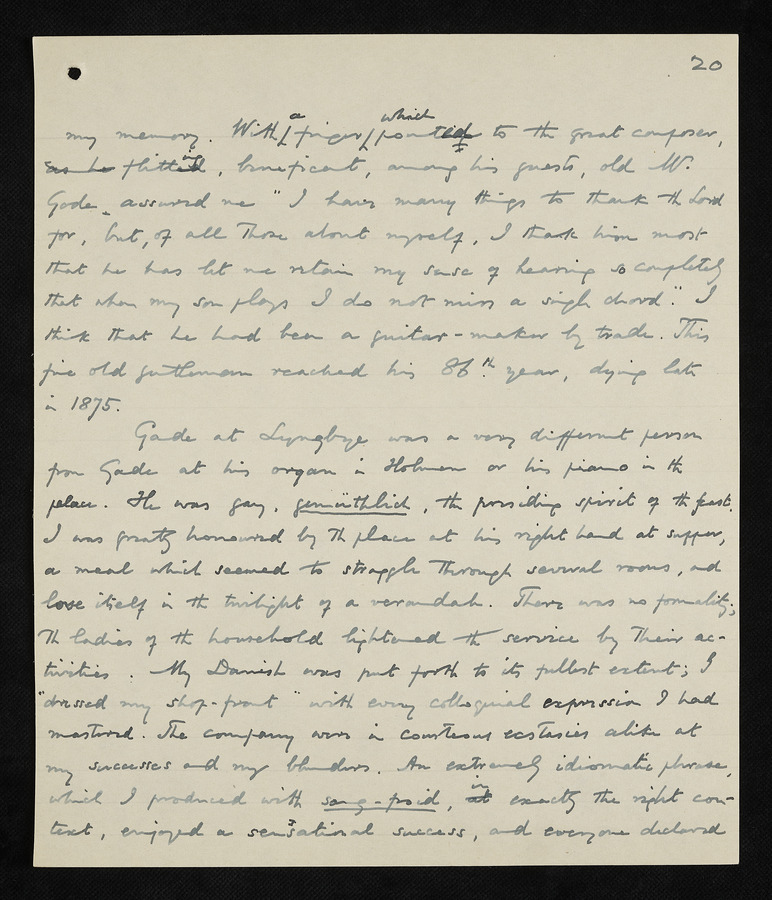 20
my memory. With a finger which pointed to the great composer,
as he flitting, beneficent, among his guests, old Mr.
Gade assured me "I have many things to thank the Lord
for, but, of all those about myself, I thank him most
that he has let me retain my sense of hearing so completely
that when my son plays I do not miss a single chord". I
think that he had been a guitar-maker by trade. This
fine old gentleman reached his 86th year, dying late
in 1875.
Gade at Lyngbye was a very different person
from Gade at his organ in Holmen or his piano in the
palace. He was gay, gemüthlich, the presiding spirit of the feast.
I was greatly honoured by the place at his right hand at supper,
a meal which seemed to straggle through several rooms, and
lose itself in the twilight of a verandah. There was no formality;
The ladies of the household lightened the service by their ac-
tivities. My Danish was put forth to its fullest extent; I
"dressed my shop-front" with every colloquial expression I had
mastered. The company were in courteous ecstasies alike at
my successes and my blunders. An extremely idiomatic phrase,
which I produced with sang-froid, at in exactly the right con-
text, enjoyed a sensational success, and everyone declared